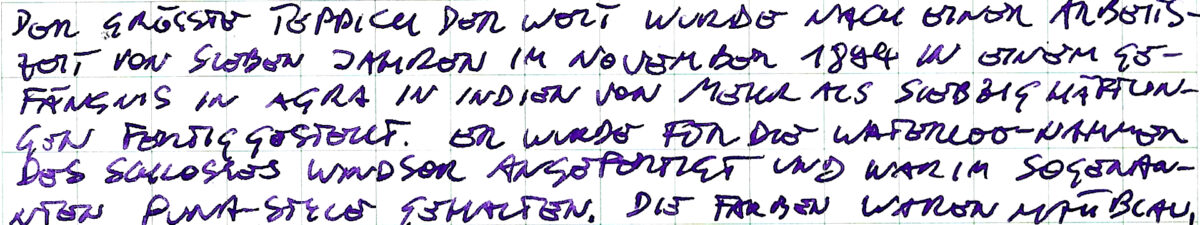 DER GRÖSSTE TEPPICH DER WELT WURDE NACH EINER ARBEITS-
ZEIT VON SIEBEN JAHREN IM NOVEMBER 1894 IN EINEM GE-
FÄNGNIS IN AGRA IN INDIEN VON MEHR ALS SIEBZIG HÄFTLIN-
GEN FERTIGGESTELLT. ER WURDE FÜR DIE WATERLOO-KAMMER
DES SCHLOSSES WINDSOR ANGEFERTIGT UND WAR IM SOGENAN-
NTEN PUNA-STILE GEHALTEN. DIE FARBEN WAREN BLAU,